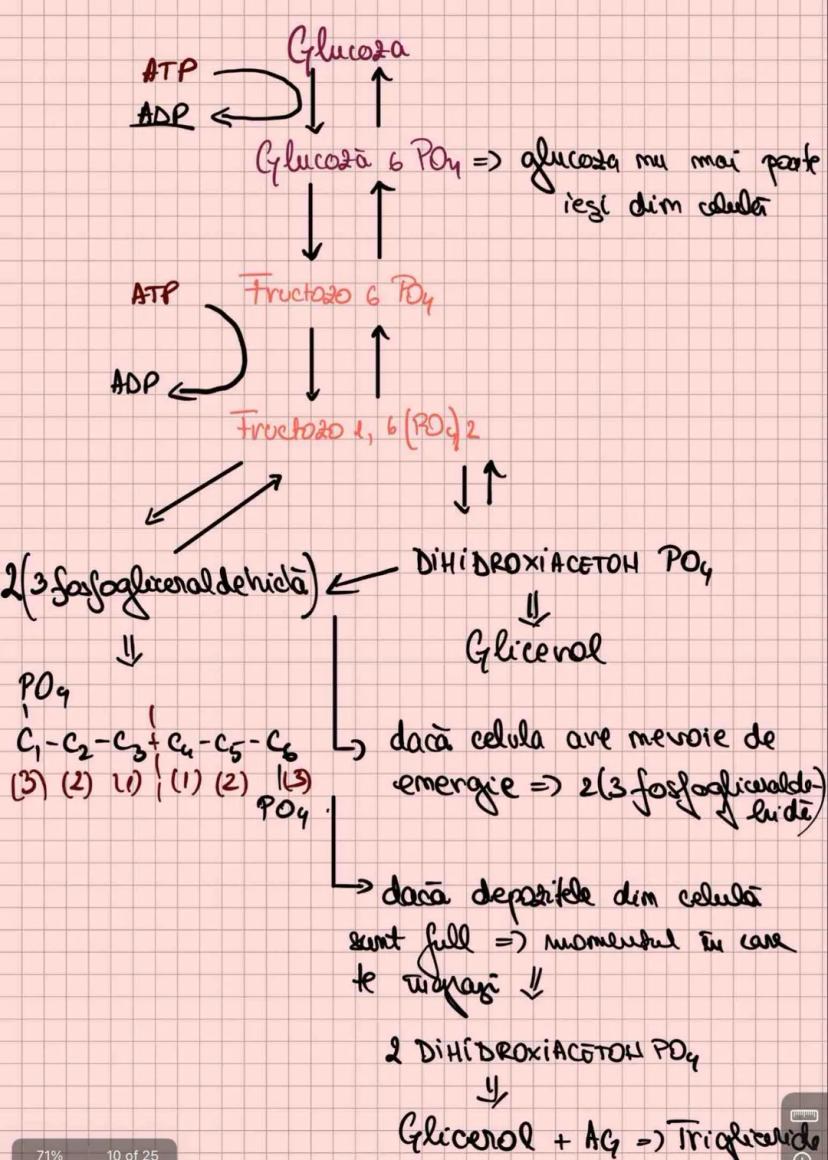 Glucoza
ATP
ADP
Glucoză 6 PO4 => glucoza nu mai poate
ieși din celulă
ATP
Fructozo 6 PO4
ADP
Fructozo 1, 6 (PO4)2
2(3 fosfogliceraldehidă)
DIHIDROXIACETON PO4
Glicerol
PO4
C1-C2-C3+C4-C5-C6
(3) (2) (1) (1) (2) (3)
PO4
dacă celula are nevoie de
energie => 2(3 fosfogliceralde-
hidă)
dacă depozitele din celulă
sunt full => momentul în care
te îngrași
2 DIHIDROXIACETON PO4
Glicerol + AG => Trigliceride
71%
10 of 25